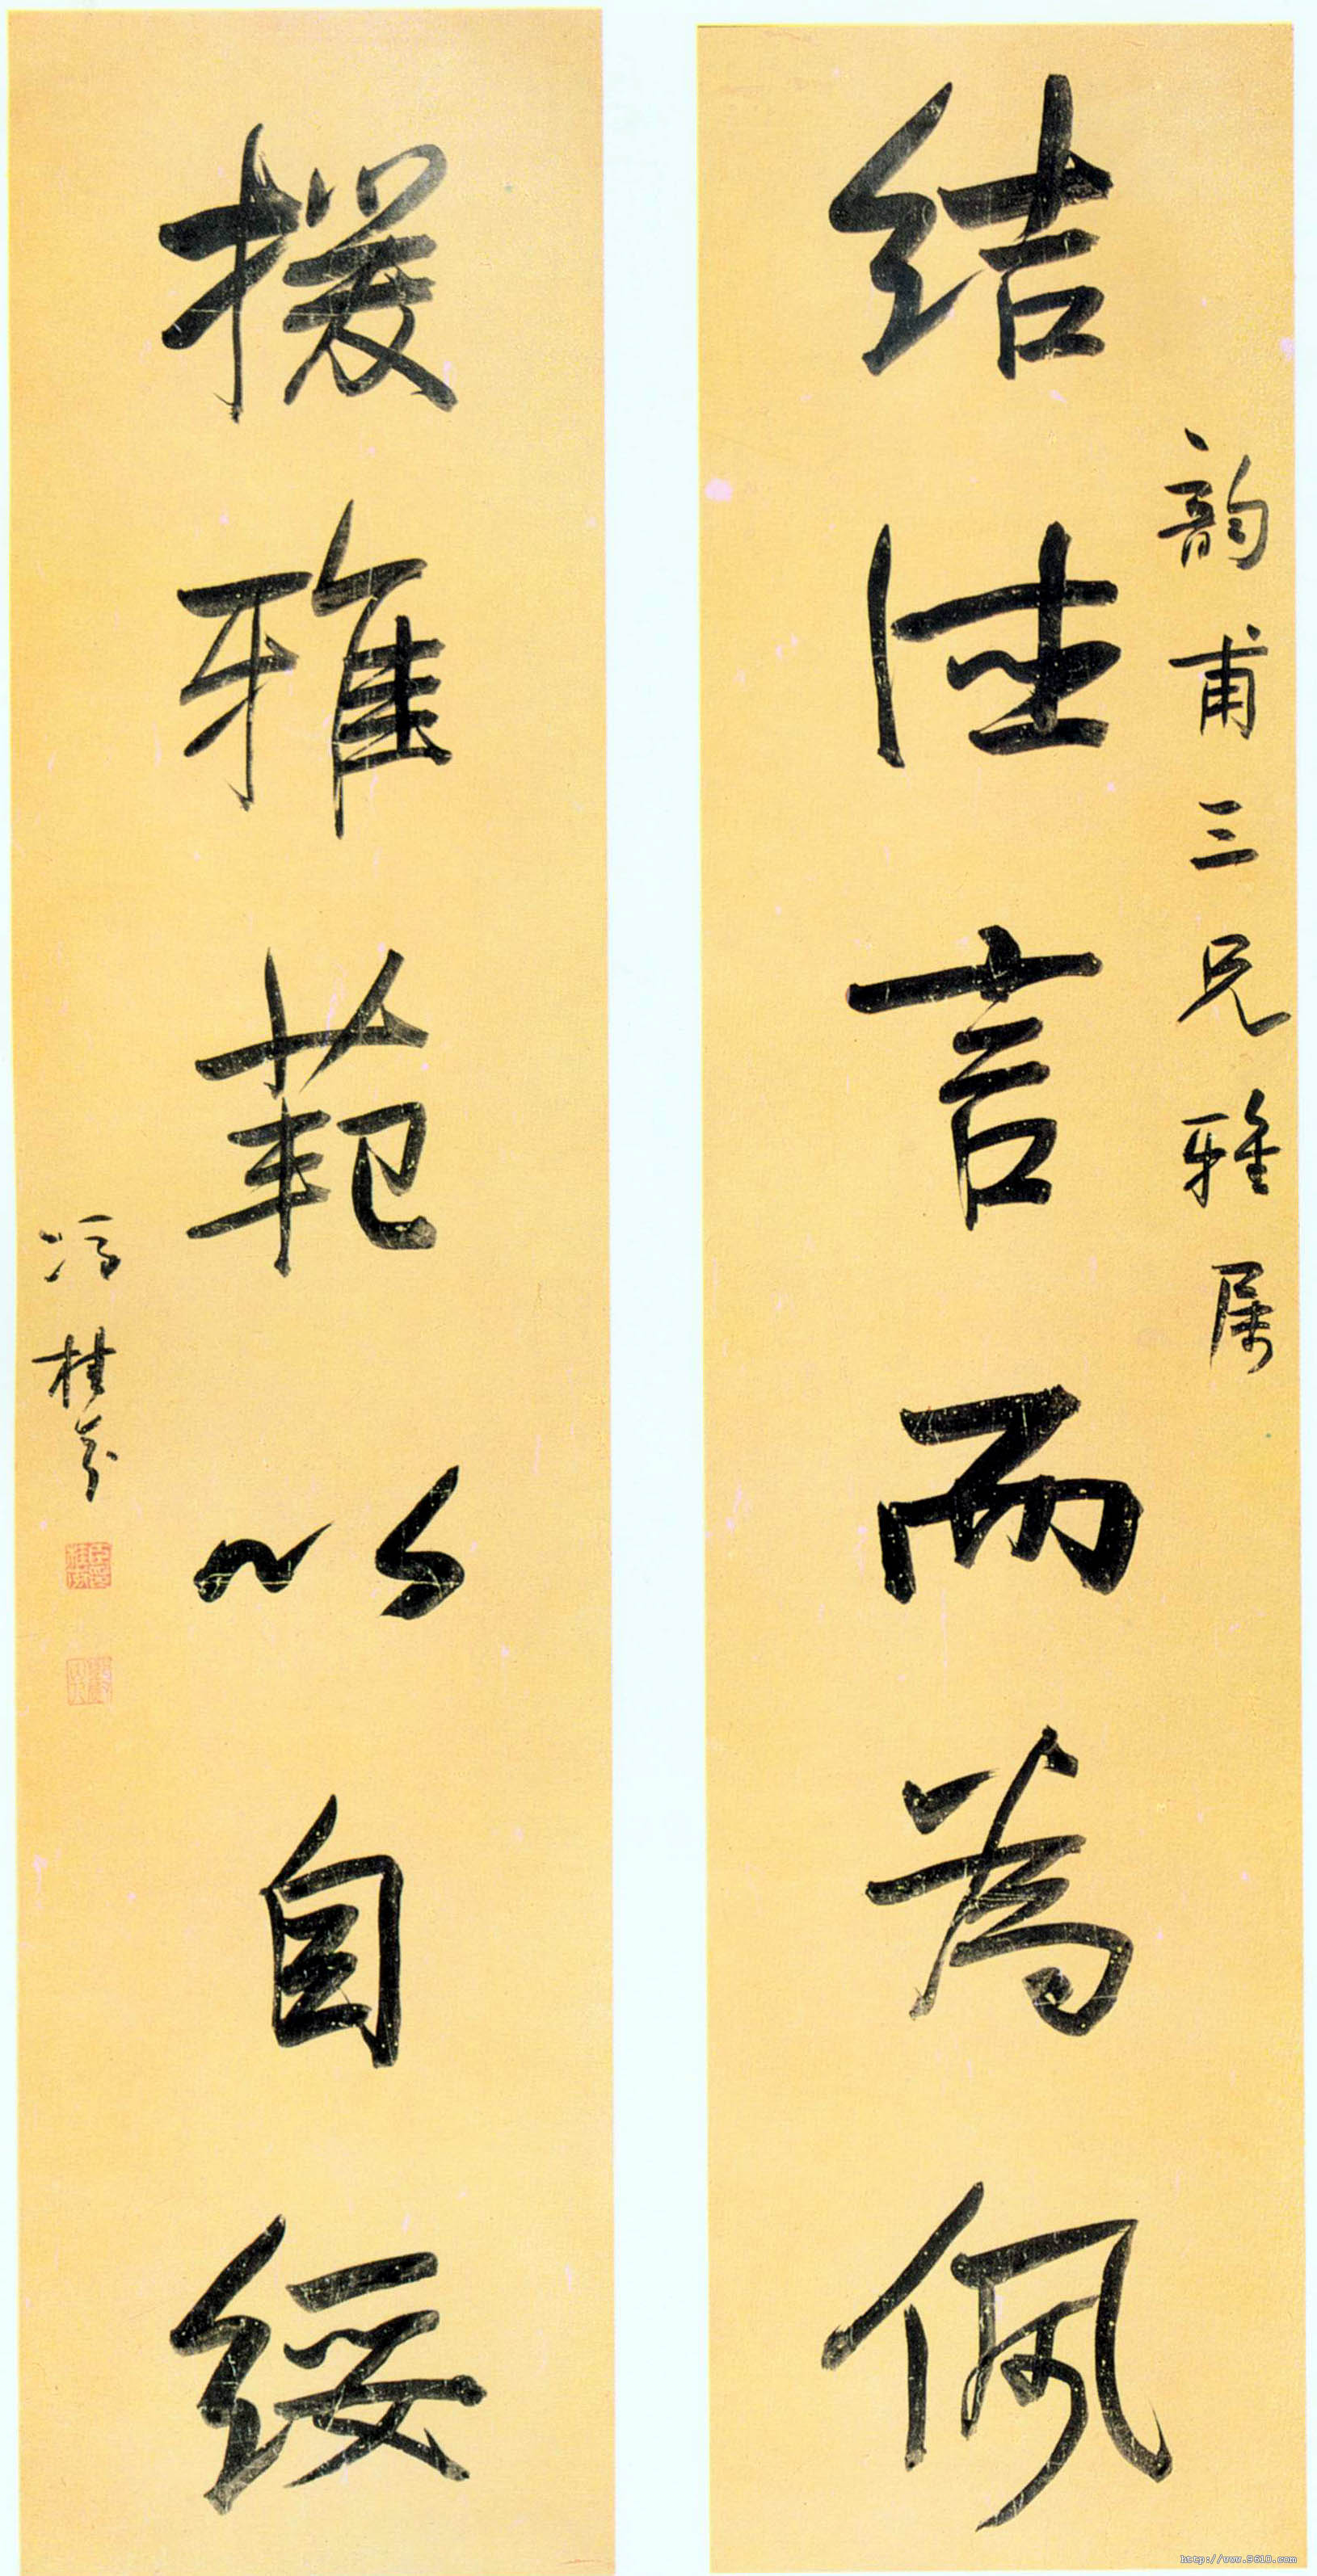 韵甫三兄雅属
结德言而為佩
援雅範以自綏
冯桂芬
http://www.9610.com